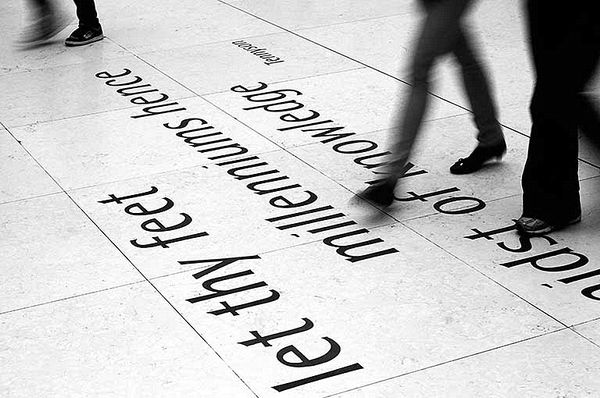 let thy feet
millenniums hence
idst of knowledge
Tennyson